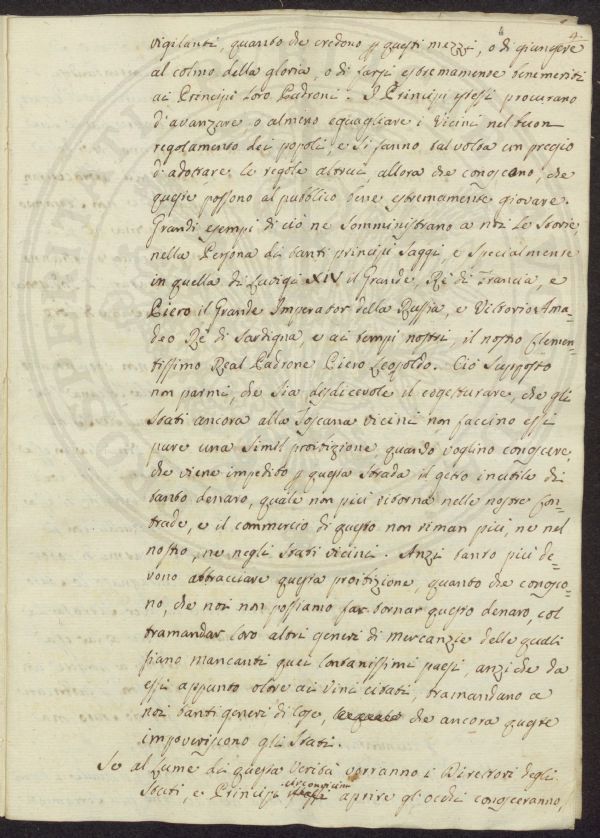 4.
vigilanti, quanto che credono p questi mezzi, o di giungere
al colmo della gloria, o di farsi estremamente benemeriti
ai Principi loro Padroni. I Principi stessi procurano
d'avanzare o almeno eguagliare i Vicini nel buon
regolamento dei popoli, e si fanno tal volta un pregio
d'adottare le regole altrui, allora che conoscano, che
queste possono al pubblico bene estremamente giovare.
Grandi esempi di ciò ne somministrano a noi le storie,
nella Persona di tanti principi saggi, e specialmente
in quella di Luvigi XIV il Grande, Rè di Francia, e
Piero il Grande Imperator della Russia, e Vittorio Ama=
deo Rè di Sardigna, e ai tempi nostri, il nostro Clemen=
tissimo Real Padrone Piero Leopoldo. Ciò supposto
non parmi, che sia desdicevole il cogetturare, che gli
Stati ancora alla Toscana vicini non faccino essi
pure una simil proitizione quando voglino conoscere,
che viene impedito p questa strada il getto inutile di
tanto denaro, quale non più ritorna nelle nostre Con=
trade, e il commercio di questo non riman più, ne nel
nostro, ne negli Stati vicini. Anzi tanto più de=
vono abbracciare questa proitizione, quanto che conosco=
no, che noi non possiamo far tornar questo denaro, col
tramandar loro altri generi di mercanzie delle quali
siano mancanti quei lontanissimi paesi, anzi che da
essi appunto oltre ai vini citati, tramandano a
noi tanti generi di cose, che ancora queste
impoveriscono gli Stati.
Se al lume di questa verità vorranno i Direttori degli
Stati, e Principi circonvicini aprire gl'occhi conosceranno,